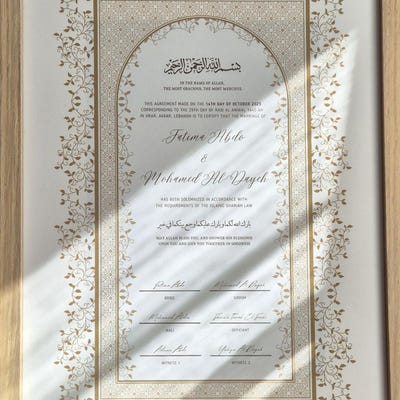 بسم الله الرحمن الرحيم
IN THE NAME OF ALLAH,
THE MOST GRACIOUS, THE MOST MERCIFUL.
THIS AGREEMENT MADE ON THE 14TH DAY OF OCTOBER 2023
CORRESPONDING TO THE 29TH DAY OF RABI AL AWWAL 1445 AH
IN AKKAR, LEBANON IS TO CERTIFY THAT THE MARRIAGE OF
Fatima Abdo
&
Mohamed Al Dayeh
HAS BEEN SOLEMNIZED IN ACCORDANCE WITH
THE REQUIREMENTS OF THE ISLAMIC SHARIAH LAW
بارك الله لكما و بارك عليكما و جمع بينكما في خير
MAY ALLAH BLESS YOU, AND SHOWER HIS BLESSING
UPON YOU AND JOIN YOU TOGETHER IN GOODNESS
Fatima Abdo
Mohamed Al Dayeh
BRIDE
GROOM
WALI
OFFICIANT
WITNESS 1
WITNESS 2